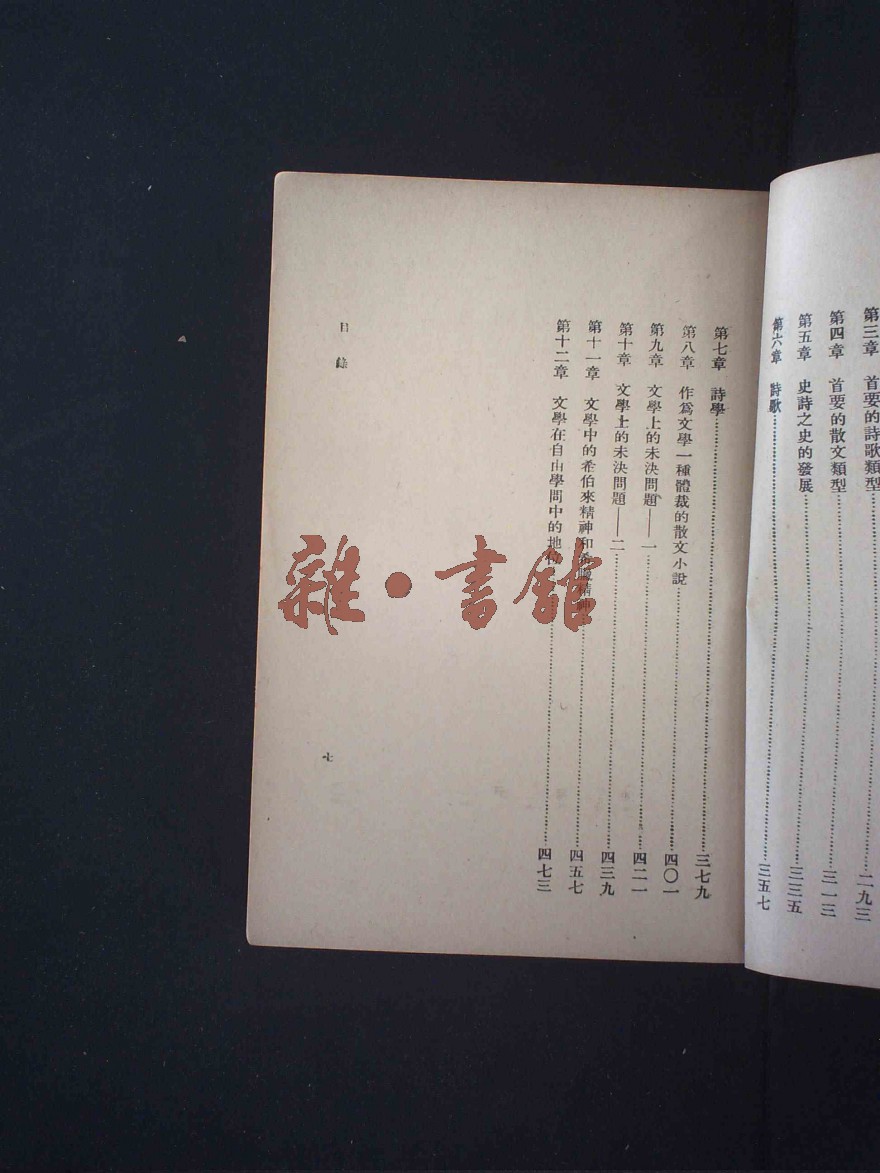 第三章 首要的詩歌類型……二九三
第四章 首要的散文類型……三一三
第五章 史詩之史的發展……三三五
第六章 詩歌……三五七
第七章 詩學……三七九
第八章 作爲文學一種體裁的散文小說……四〇一
第九章 文學上的未決問題——一……四二一
第十章 文學上的未決問題——二……四三九
第十一章 文學中的希伯來精神和希臘精神……四五七
第十二章 文學在自由學問中的地位……四七三
目錄
七
雜·書館